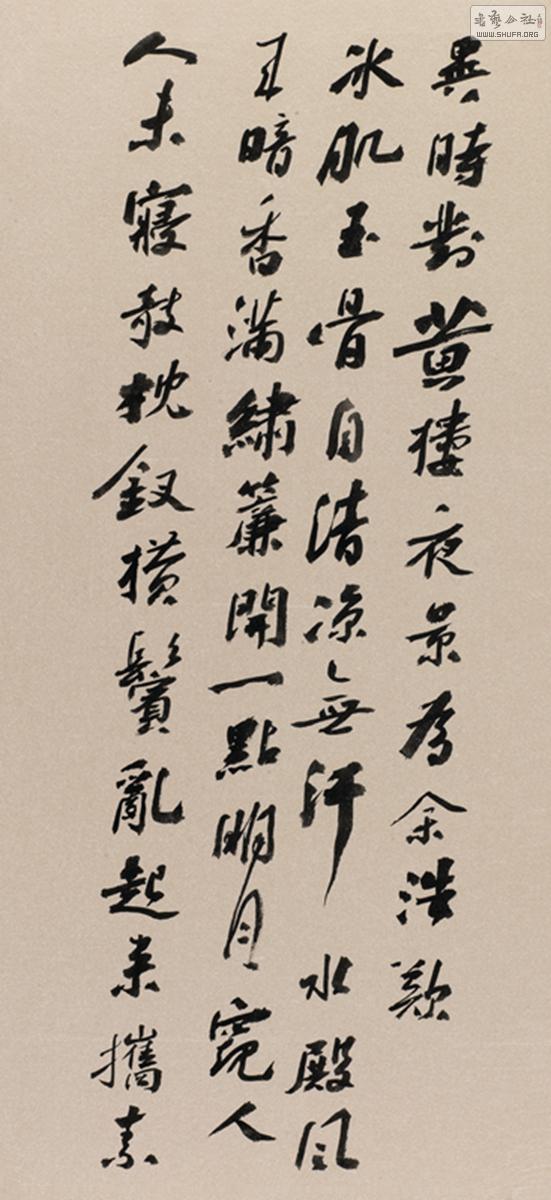 異時對黃樓夜景為余浩歎
冰肌玉骨自清涼無汗水殿風
來暗香滿繡簾開一點明月窺人
人未寢欹枕釵橫鬢亂起來攜素
書藝公社
WWW.SHUFA.ORG